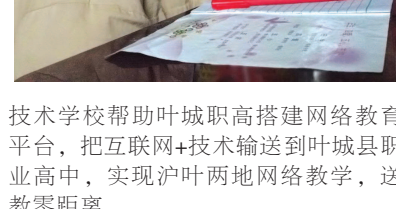 技术学校帮助叶城职高搭建网络教育
平台，把互联网+技术输送到叶城县职
业高中，实现沪叶两地网络教学，送
教零距离